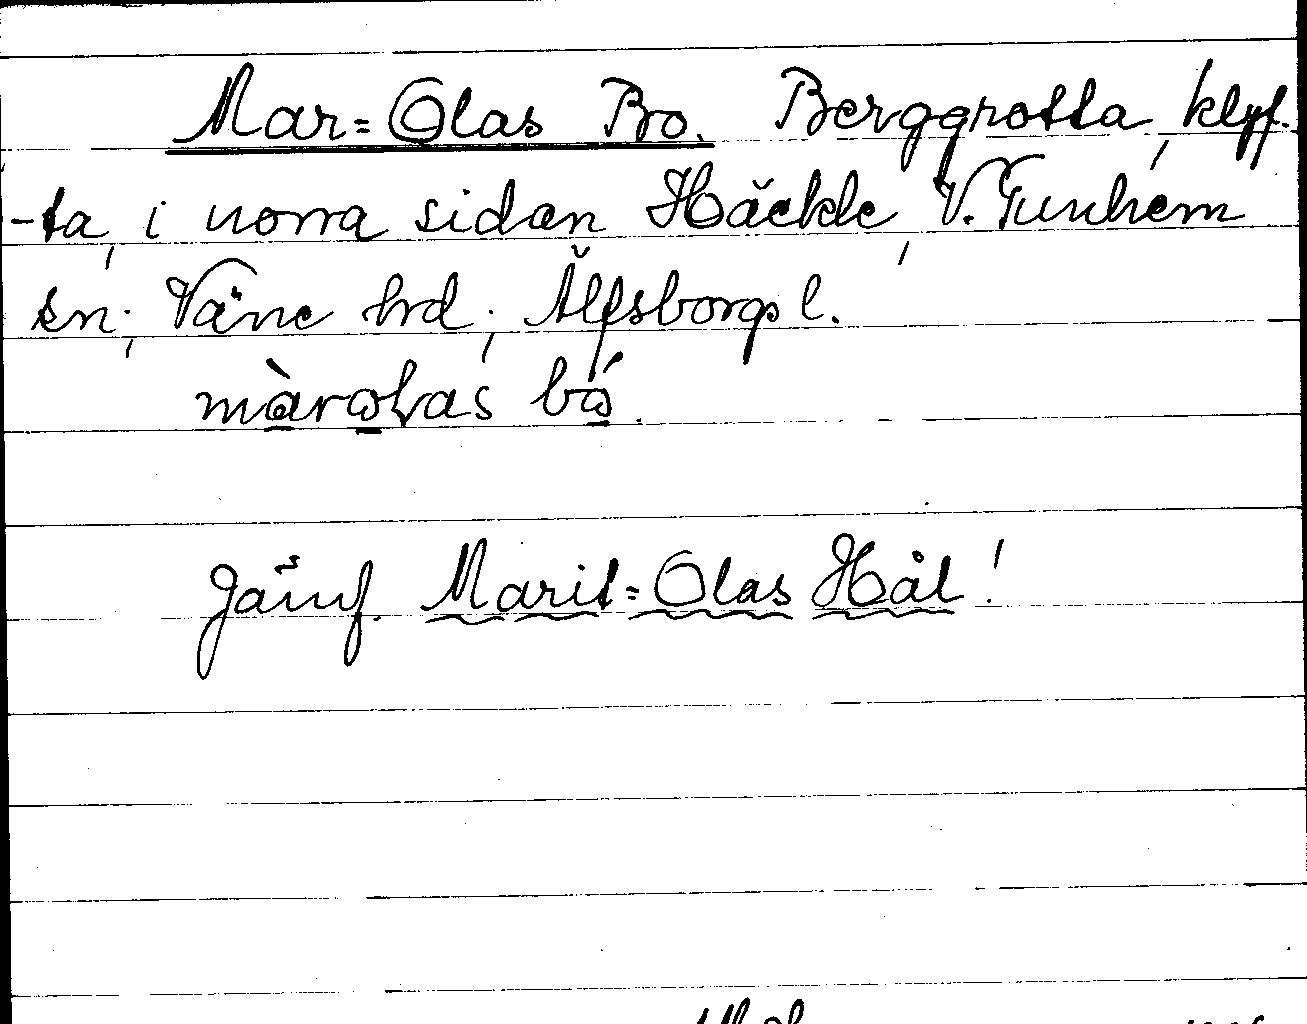 Mar=Olas Bo. Berggrotta, klyf-
-ta, i norra sidan Häckle, V. Tunhem
sn; Väne hrd; Älfsborgs l.
màrolas bó.
Jämf. Marit=Olas Hål!